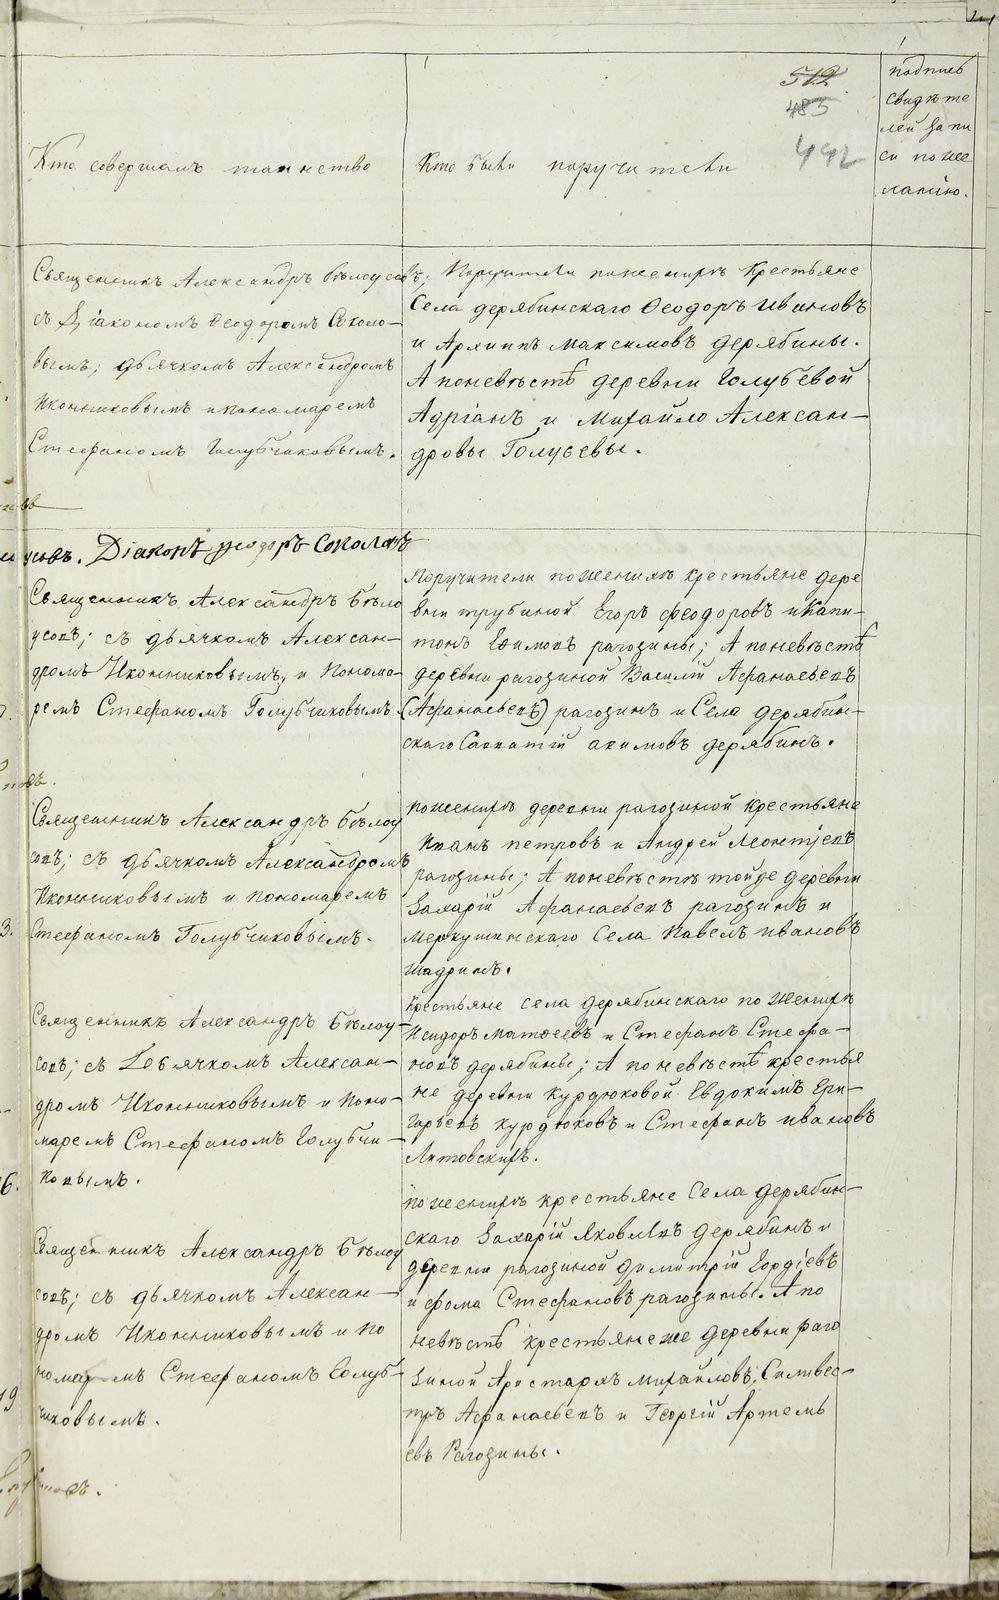 512
485
492
Кто совершалъ таинство
Кто были поручители
подпись
свидѣте
лей запи
си по же
ланiю.
Священникъ Александръ Бѣлоусовъ;
съ Дiакономъ Ѳеодоромъ Соколо-
вымъ; дьячкомъ Александромъ
Иконниковымъ и пономаремъ
Стефаномъ Голубчиковымъ.
Поручители по женихѣ крестьяне
Села дерябинскаго Ѳеодоръ Ивановъ
и Архиппъ Максимовъ Дерябины.
А по невѣстѣ деревни Голубевой
Адрiанъ и Михайло Алексан-
дровы Голубевы.
усовъ. Дiаконъ Ѳеодоръ Соколовъ
Священникъ Александръ Бѣло
усовъ; съ дьячкомъ Алексан-
дромъ Иконниковымъ, и Понома-
ремъ Стефаномъ Голубчиковымъ.
Поручители по женихѣ крестьяне дере
вни трубиной Егоръ Феодоровъ и Капи-
тонъ Ефимовъ рагозины; А по невѣстѣ
деревни рагозиной Василiй Афанасьевъ
(Афанасьевъ) рагозинъ и Села дерябин-
скаго Савватiй акимовъ дерябинъ.
Священникъ Александръ Бѣлоу
совъ; съ дьячкомъ Александромъ
Иконниковымъ и пономаремъ
Стефаномъ Голубчиковымъ.
по женихѣ деревни рагозиной крестьяне
Иванъ петровъ и Андрей Леонтiевъ
рагозины; А по невѣстѣ той же деревни
Захарiй Афанасьевъ рагозинъ и
Меркушинскаго Села Павелъ Ивановъ
Шадринъ.
Священникъ Александръ Бѣлоу-
совъ; съ дьячкомъ Алексан-
дромъ Иконниковымъ и Поно-
маремъ Стефаномъ Голубчи-
ковымъ.
Крестьяне села дерябинскаго по женихѣ
Исидоръ Матѳеевъ и Стефанъ Стефа-
новъ дерябины; А по невѣстѣ крестья
не деревни Курдюковой Евдокимъ Гри-
горьевъ курдюковъ и Стефанъ ивановъ
Литовскихъ.
Священникъ Александръ Бѣлоу
совъ; съ дьячкомъ Алексан-
дромъ Иконниковымъ и по
номаремъ Стефаномъ Голуб-
чиковымъ.
по женихѣ крестьяне Села дерябин-
скаго Захарiй Яковлевъ дерябинъ и
деревни рагозиной Димитрiй Гордiевъ
и фома Стефановъ рагозины. А по
невѣстѣ крестьяне же деревни раго
зиной Аристархъ михайловъ, Силвес-
тръ Афанасьевъ и Георгiй Артемь
евъ Рагозины.